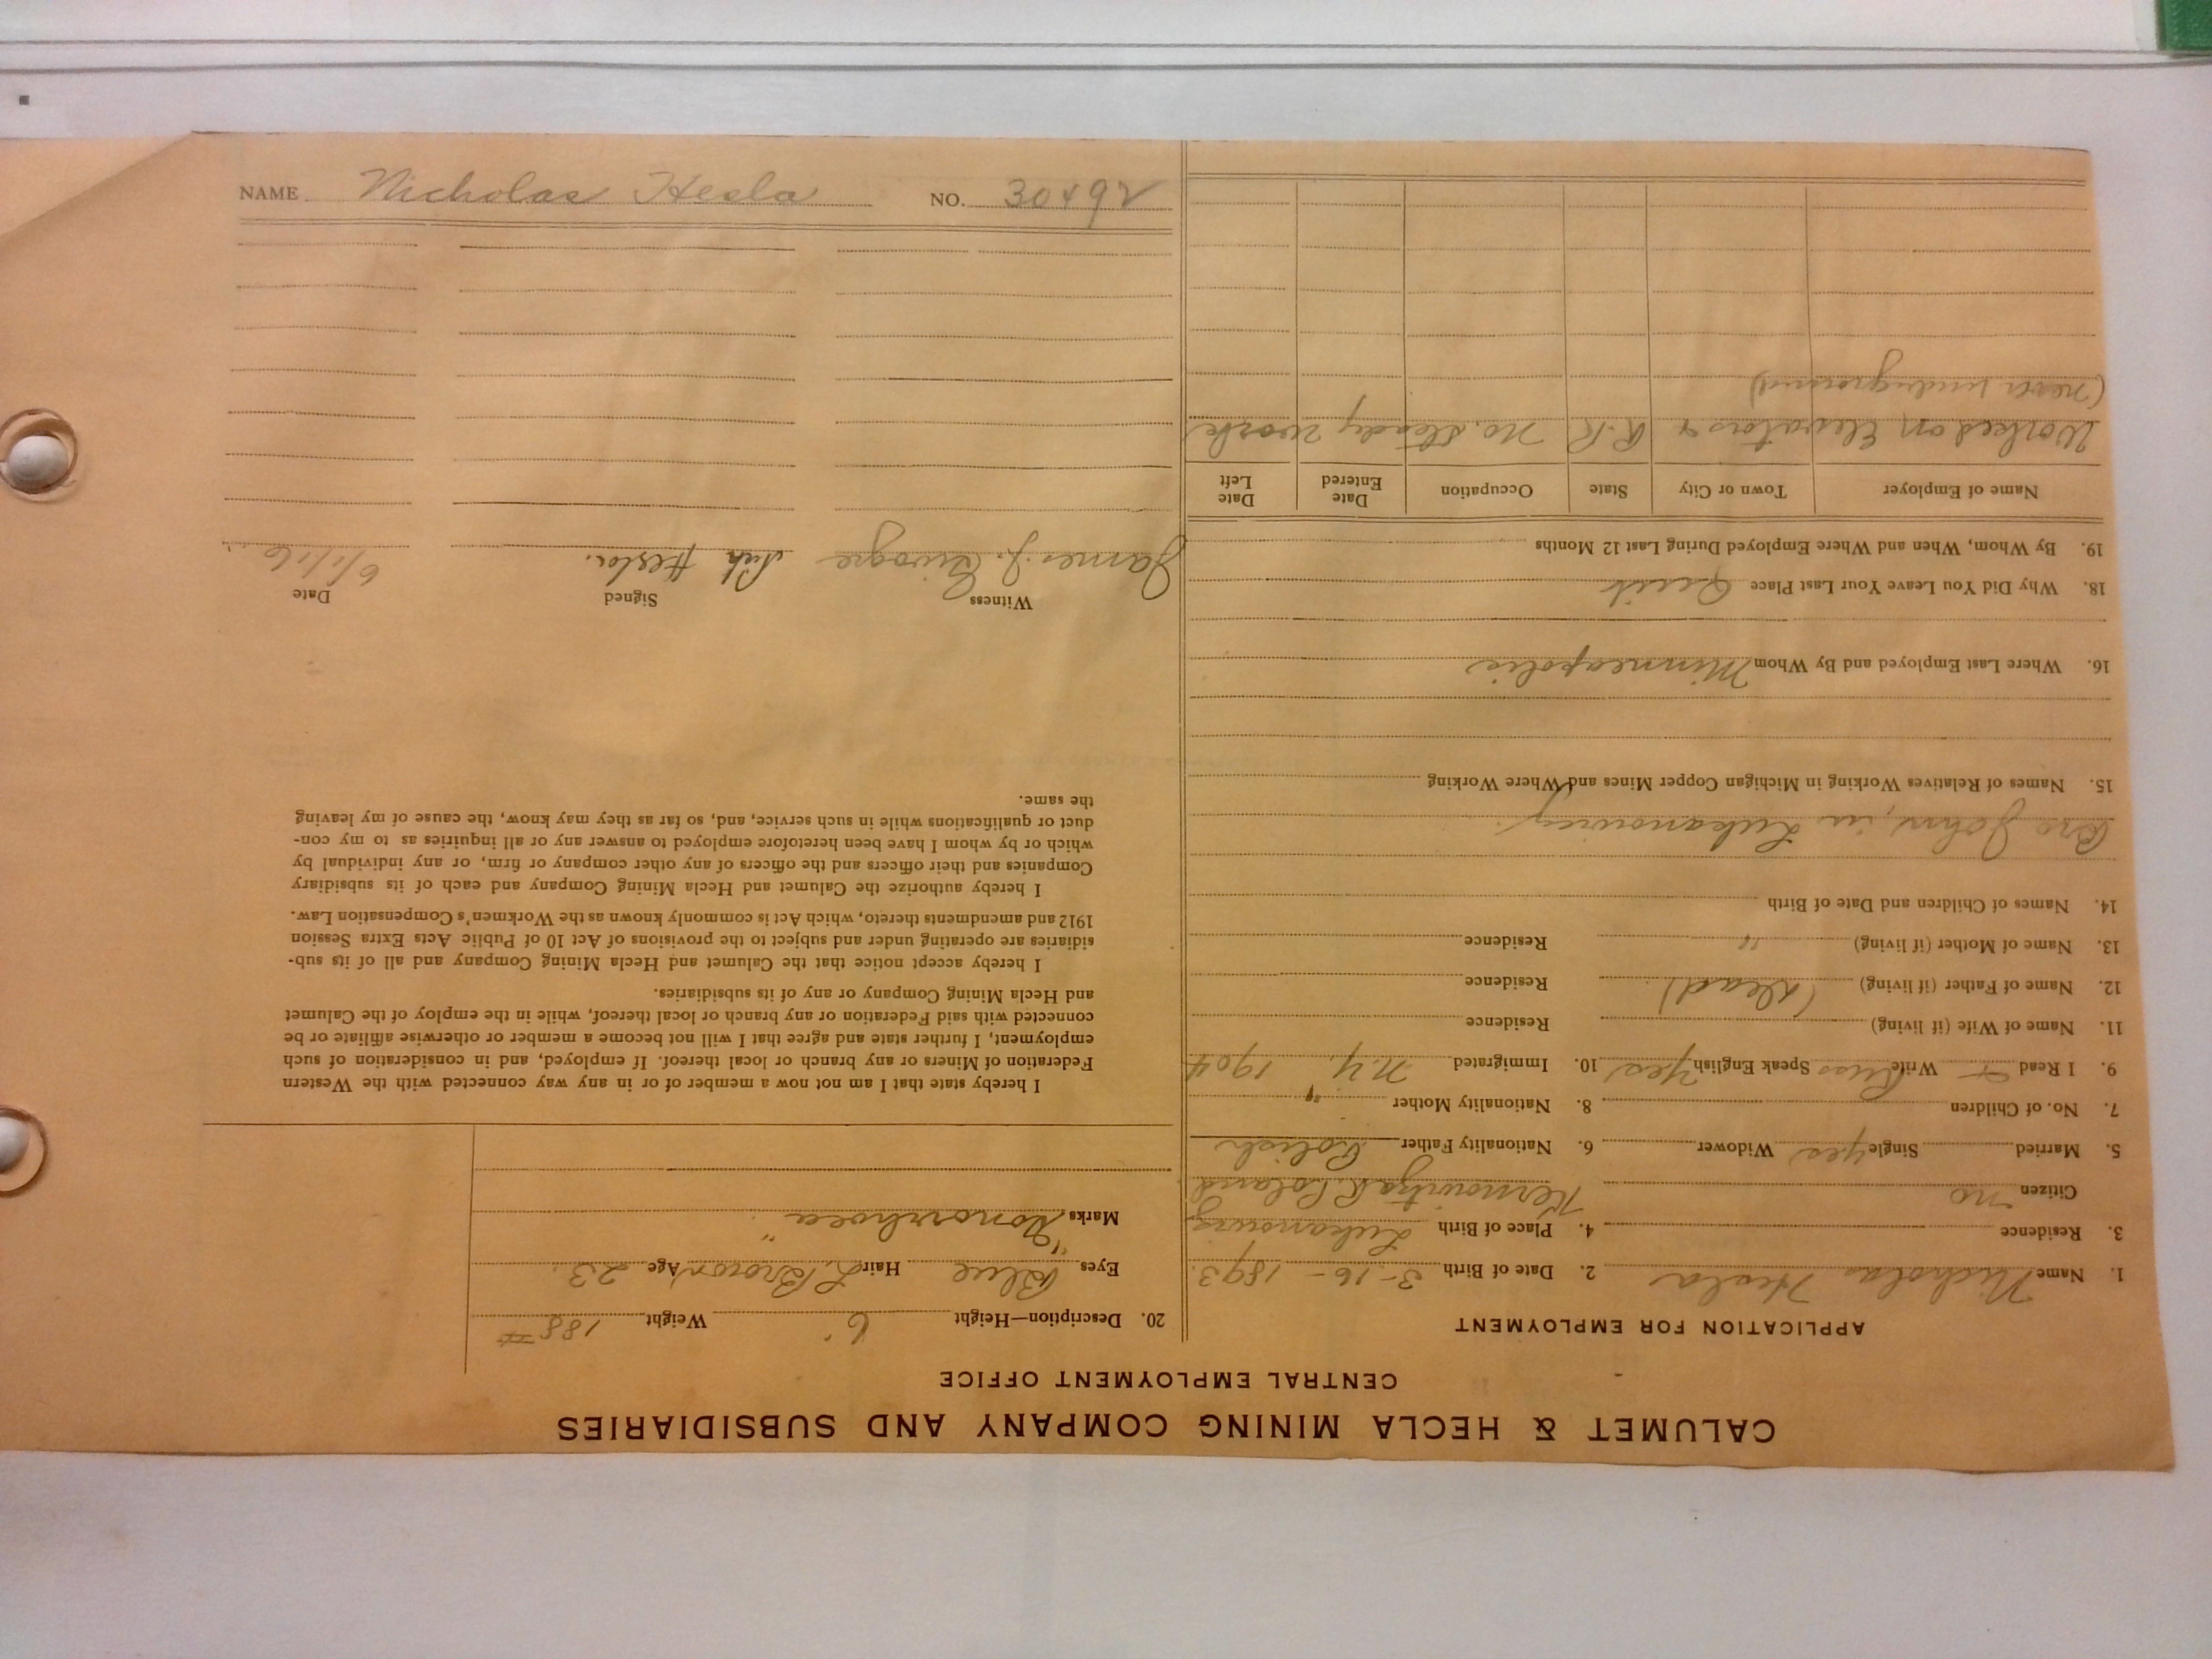 CALUMET & HECLA MINING COMPANY AND SUBSIDIARIES
CENTRAL EMPLOYMENT OFFICE
APPLICATION FOR EMPLOYMENT
1. Name Nicholas Hesla 2. Date of Birth 3-16-1893.
3. Residence 4. Place of Birth
Citizen no R. Poland
5. Married Single yes Widower 6. Nationality Father Polish
7. No. of Children 8. Nationality Mother "
9. I Read + Write Russ Speak English Yes 10. Immigrated N.Y. 1904
11. Name of Wife (if living) Residence
12. Name of Father (if living) (dead) Residence
13. Name of Mother (if living) " Residence
14. Names of Children and Date of Birth
Bro John, in
15. Names of Relatives Working in Michigan Copper Mines and Where Working
16. Where Last Employed and By Whom Minneapolis
18. Why Did You Leave Your Last Place Quit
19. By Whom, When and Where Employed During Last 12 Months
Name of Employer Town or City State Occupation Date Entered Date Left
Worked on Elevators & R.R. No. steady work
(never underground)
20. Description—Height 6' Weight 188 #
Eyes Blue Hair L. Brown Age 23.
Marks "Gonorrhoea"
I hereby state that I am not now a member of or in any way connected with the Western
Federation of Miners or any branch or local thereof. If employed, and in consideration of such
employment, I further state and agree that I will not become a member or otherwise affiliate or be
connected with said Federation or any branch or local thereof, while in the employ of the Calumet
and Hecla Mining Company or any of its subsidiaries.
I hereby accept notice that the Calumet and Hecla Mining Company and all of its sub-
sidiaries are operating under and subject to the provisions of Act 10 of Public Acts Extra Session
1912 and amendments thereto, which Act is commonly known as the Workmen's Compensation Law.
I hereby authorize the Calumet and Hecla Mining Company and each of its subsidiary
Companies and their officers and the officers of any other company or firm, or any individual by
which or by whom I have been heretofore employed to answer any or all inquiries as to my con-
duct or qualifications while in such service, and, so far as they may know, the cause of my leaving
the same.
Witness Signed Date
James J. Nich Hesla. 6/1/16.
NAME Nicholas Hesla NO. 30492